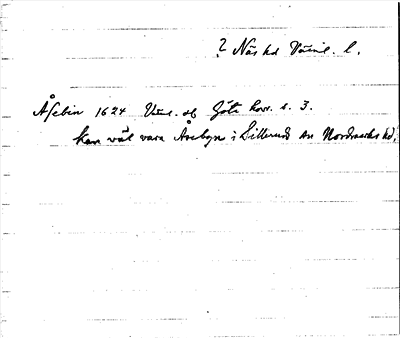 ? Näs hd Värml. l.
Åsebin 1624 Värml. o Göta horr. s. 3.
kan väl vara Åsebyn i Sillerud sn Nordmarks hd.